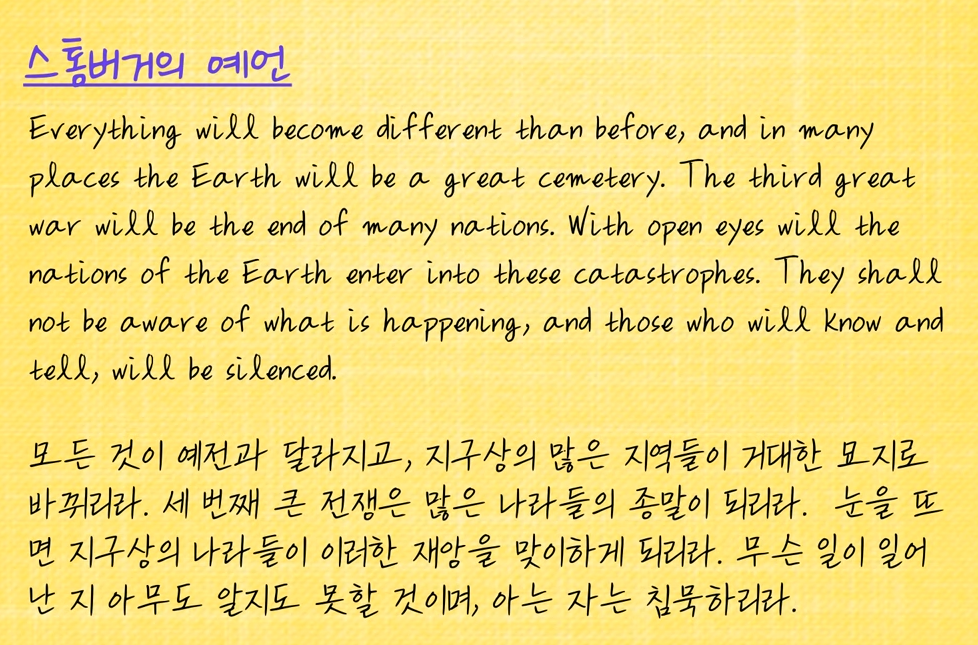 스톰버거의 예언
Everything will become different than before, and in many
places the Earth will be a great cemetery. The third great
war will be the end of many nations. With open eyes will the
nations of the Earth enter into these catastrophes. They shall
not be aware of what is happening, and those who will know and
tell, will be silenced.
모든 것이 예전과 달라지고, 지구상의 많은 지역들이 거대한 묘지로
바뀌리라. 세 번째 큰 전쟁은 많은 나라들의 종말이 되리라. 눈을 뜨
면 지구상의 나라들이 이러한 재앙을 맞이하게 되리라. 무슨 일이 일어
난 지 아무도 알지도 못할 것이며, 아는 자는 침묵하리라.